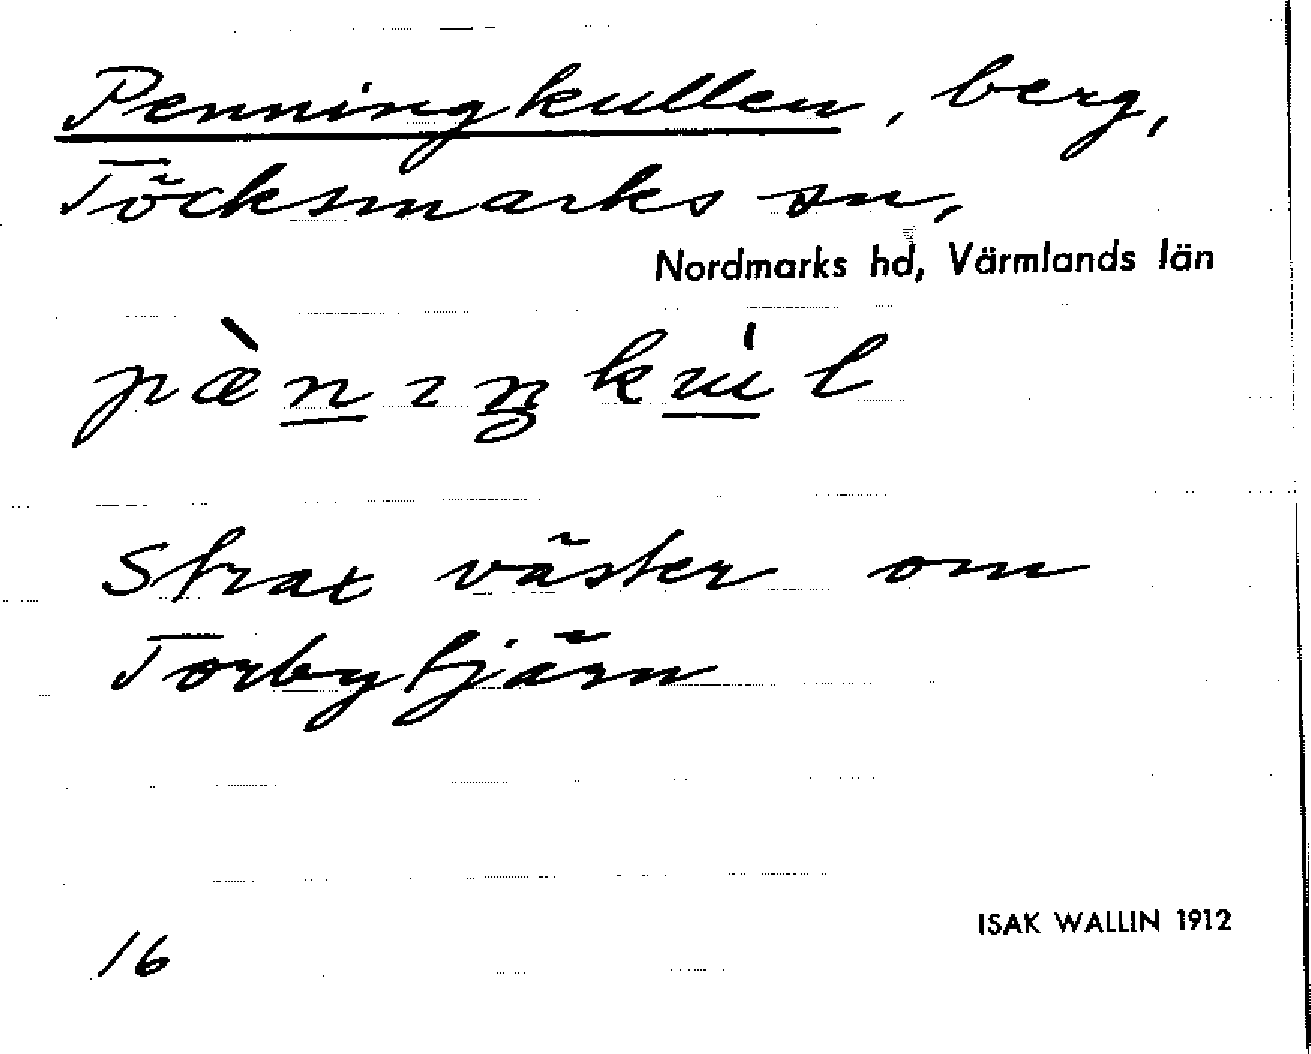 Penningkullen, berg,
Töcksmarks sn,
Nordmarks hd, Värmlands län
Strax väster om
Torbytjärn
ISAK WALLIN 1912
16